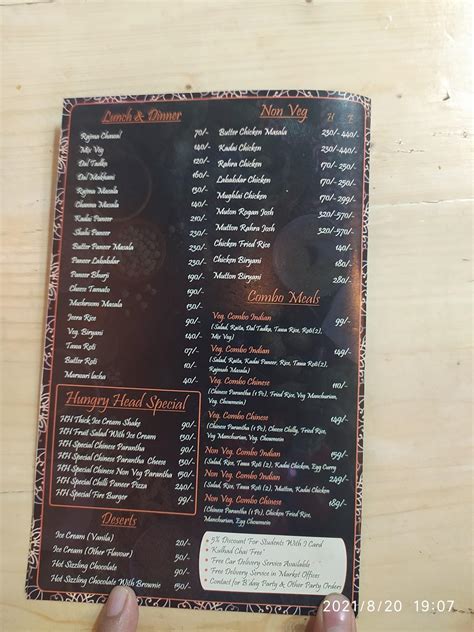 Lunch & Dinner
Rajma Chawal 70/-
Mix Veg 140/-
Dal Tadka 120/-
Dal Makhani 160/-
Rajma Masala 150/-
Channa Masala 140/-
Kadai Paneer 200/-
Shahi Paneer
Butter Paneer Masala
Paneer Lababdar
Paneer Bhurji
Cheese Tomato
Mushroom Masala
Jeera Rice 90/-
Veg. Biryani
Tawa Roti
Butter Roti
Marwari lacha
Hungry Head Special
HH Thick Ice Cream Shake 90/-
HH Fruit Salad With Ice Cream
HH Special Chinese Parantha 90/-
HH Special Chinese Parantha Cheese
HH Special Chinese Non Veg Parantha
HH Special Chilli Paneer Pizza 240/-
HH Special Fire Burger 99/-
Deserts
Ice Cream (Vanila) 20/-
Ice Cream (Other Flavour) 50/-
Hot Sizzling Chocolate
Hot Sizzling Chocolate With Brownie 150/-
Non Veg H F
Butter Chicken Masala 230/-440/-
Kadai Chicken 230/-440/-
Rahra Chicken 170/-250/-
Lababdar Chicken 170/-250/-
Mughlai Chicken 170/-250/-
Mutton Rogan Josh 320/-570/-
Mutton Rahra Josh 320/-570/-
Chicken Fried Rice 140/-
Chicken Biryani 180/-
Mutton Biryani 280/-
Combo Meals
Veg. Combo Indian 99/-
(Salad, Raita, Dal Tadka, Tawa Rice, Roti(2),
Mix Veg)
Veg. Combo Indian 149/-
(Salad, Raita, Kadai Paneer, Rice, Tawa Roti(2),
Rajmah Masala)
Veg Combo Chinese 110/-
(Chinese Parantha (1 Pc), Fried Rice, Veg Manchurian,
Veg. Chowmein)
Veg Combo Chinese 149/-
(Chinese Parantha (1 Pc), Cheese Chilly, Fried Rice,
Veg Manchurian, Veg. Chowmein
Non Veg Combo Indian 159/-
(Salad, Rice, Tawa Roti (2), Kadai Chicken, Egg Curry
Non Veg. Combo Indian 249/-
(Salad, Rice, Tawa Roti (2), Mutton, Kadai Chicken
Non Veg. Combo Chinese 189/-
(Chinese Parantha (1 Pc), Chicken Fried Rice,
Manchurian, Egg Chowmein
• 5% Discount For Students With I Card
• Kulhad Chai Free*
• Free Car Delivery Service Available
• Free Delivery Service in Market Offices
• Contact for B'day Party & Other Party Orders
2021/8/20 19:07